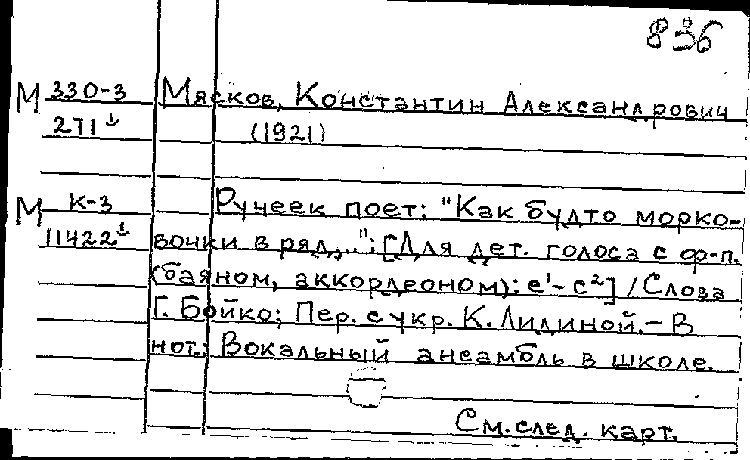 836
М 330-3 Мясков, Константин Александрович
271 (1921)
М К-3 Ручеек поет: "Как будто морко-
11422 вочки в ряд..."; [Для дет. голоса с ф-п.
(баяном, аккордеоном): e¹- c²] / Слова
Г. Бойко; Пер. с укр. К. Лидиной. – В
нот.: Вокальный ансамбль в школе.
См. след. карт.